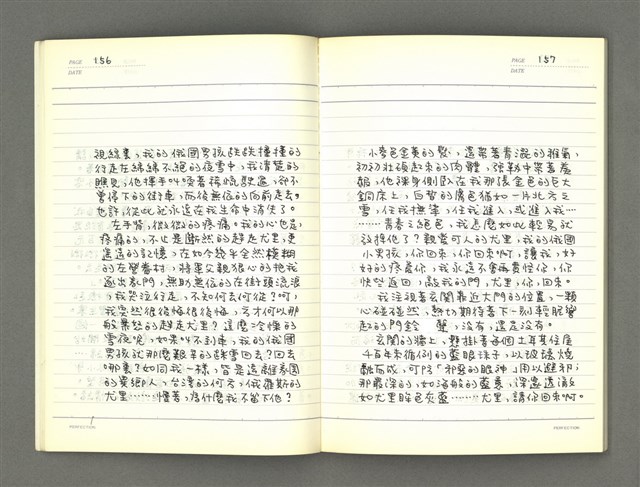 PAGE 156
DATE
視線裏，我的俄國男孩跌跌撞撞的
行走在綿綿不絕的夜雪中，我清楚的
瞧見，他揮手叫喚著稀疏駛過，卻不
曾停下的街車，而後無依的向前走去。
也許，從此就永遠在我生命中消失了。
左手臂，微微的疼痛。我的心也是
疼痛的，不止是斷然的趕走尤里，更
遙遠的記憶，在如今幾乎全然模糊
的左營眷村，將軍父親狠心的把我
逐出家門，無助無依的在街頭流浪
，我哭泣行走，不知何去何從？呵，
我突然很後悔很後悔，方才何以那
般棄怒的趕走尤里？這麼冷悚的
雪夜呢，如果叫不到車，我的俄國
男孩就那麼艱辛的踩雪回去？回去
哪裏？如同我一樣，皆是遠離家園
的異鄉人，台灣的何方，俄羅斯的
尤里……懂著，為什麼我不留下他？
PERFECTION
PAGE 157
DATE
小麥色金黃的髮，還帶著青澀的稚氣，
初初壯碩起來的肉體，強韌中帶著羞
赧，他裸身側臥在我那張金色的巨大
銅床上，白皙的膚色猶如一片北方之
雪，任我撫摩，任我進入，或進入我…
……青春之絕色，我怎麼如此輕易就
放掉他了？親愛可人的尤里，我的俄國
小男孩，你回來，你回來啊，讓我，好
好的疼惜你，我永遠不會再責怪你，你
快些返回，敲我的門，尤里，你回來。
我注視著玄關靠近大門的位置，一顆
心碰碰然，熱切期待著下一刻輕脆響
起的門鈴聲，沒有，還是沒有。
玄關的牆上，懸掛著每個土耳其住居
千百年來循例的藍眼珠子，以玻璃燒
製而成，可防「邪惡的眼神」用以避邪；
那最深的，如海般的藍意，深邃透澈
如尤里眸色灰藍……尤里，請你回來啊。
PERFECTION